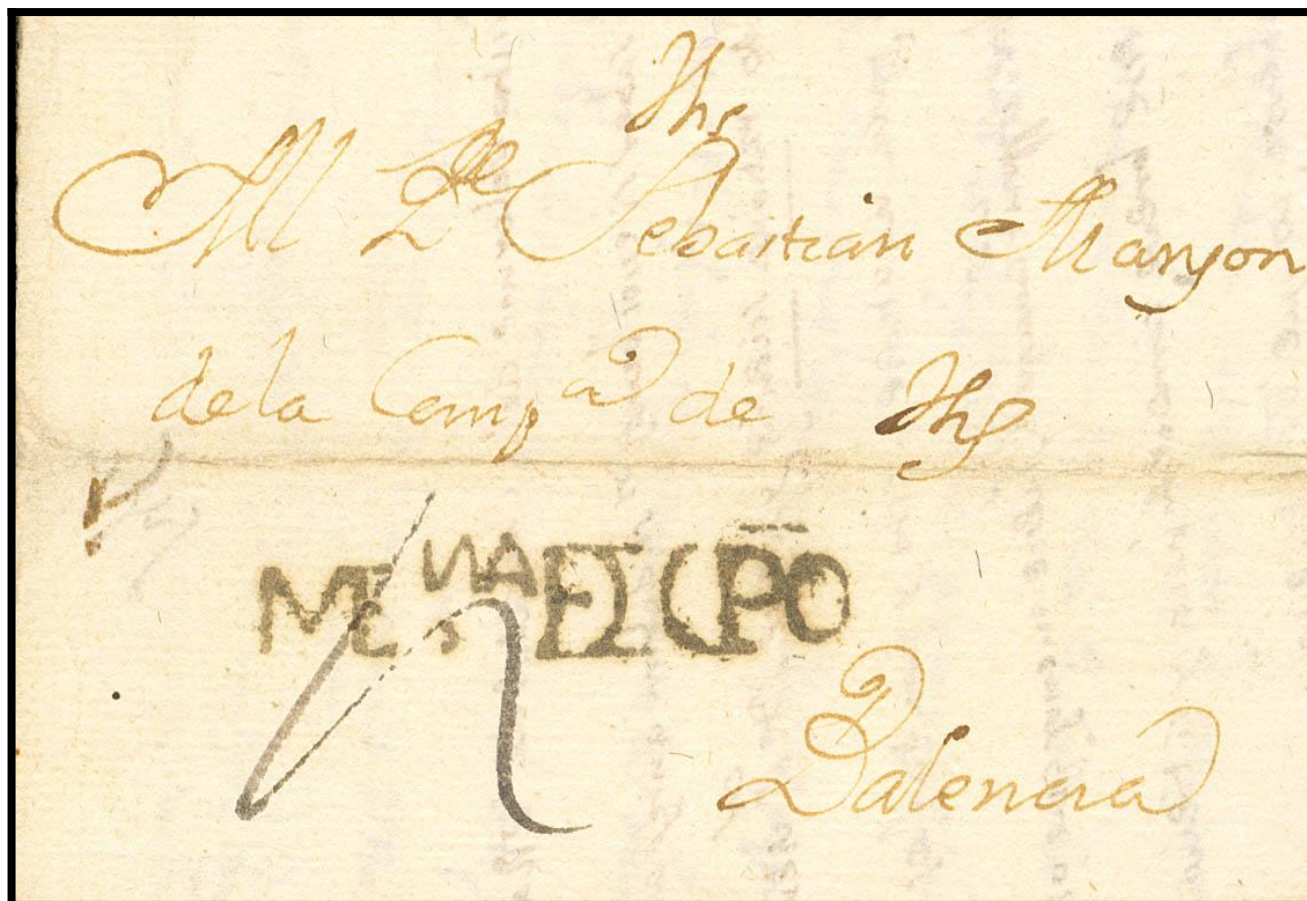 Jhs
Al Pe Sebastian Manjon
de la Compa de Jhs
MENA EL CPO
Palencia